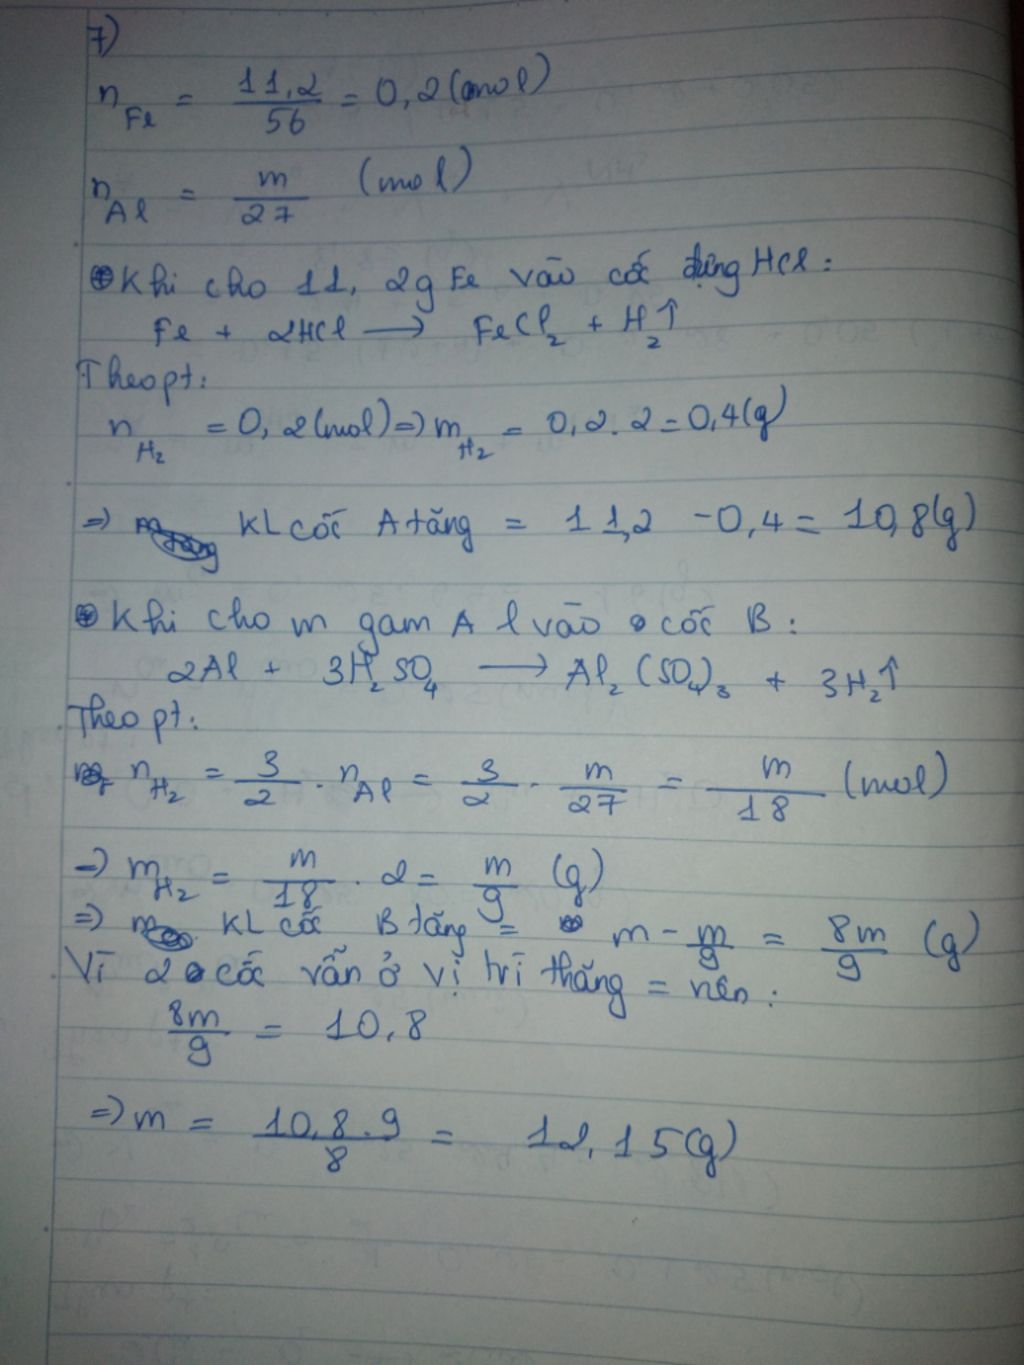 7)
n_Fe = 11,2/56 = 0,2 (mol)
n_Al = m/27 (mol)
⊕ Khi cho 11,2g Fe vào cốc đựng HCl:
Fe + 2HCl → FeCl₂ + H₂↑
Theo pt:
n_H₂ = 0,2 (mol) => m_H₂ = 0,2.2 = 0,4 (g)
=> KL cốc A tăng = 11,2 - 0,4 = 10,8 (g)
⊕ Khi cho m gam Al vào cốc B:
2Al + 3H₂SO₄ → Al₂(SO₄)₃ + 3H₂↑
Theo pt:
n_H₂ = 3/2 . n_Al = 3/2 . m/27 = m/18 (mol)
=> m_H₂ = m/18 . 2 = m/9 (g)
=> KL cốc B tăng = m - m/9 = 8m/9 (g)
Vì 2 cốc vẫn ở vị trí thăng = nên:
8m/9 = 10,8
=> m = 10,8.9/8 = 12,15 (g)